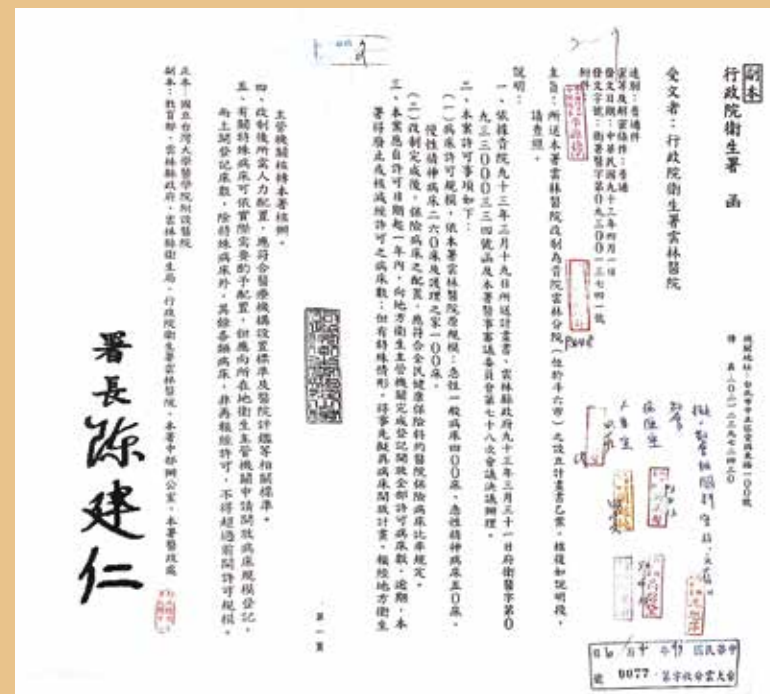 副本
行政院衛生署　函
機關地址：台北市中正區愛國東路一00號
傳　真：
受文者：行政院衛生署雲林醫院
速別：普通件
密等及解密條件：普通
發文日期：中華民國九十三年四月一日
發文字號：衛署醫字第0九三00一三七四一號
附件：
主旨：所送本署雲林醫院改制為貴院雲林分院（位於斗六市）之設立計畫書乙案，核復如說明段，
請查照。
說明：
一、依據貴院九十三年三月十九日所送計畫書、雲林縣政府九十三年三月三十一日府衛醫字第0
九三三000三三四號函及本署醫事審議委員會第七十八次會議決議辦理。
二、本案許可事項如下：
（一）病床許可規模，依本署雲林醫院原規模：急性一般病床四00床、急性精神病床五0床、
慢性精神病床二六0床及護理之家一00床。
（二）改制完成後，保險病床之配置，應符合全民健康保險特約醫院保險病床比率規定。
三、本案應自許可日期起一年內，向地方衛生主管機關完成登記開放全部許可病床數，逾期，本
署得廢止或核減經許可之病床數；但有特殊情形，得事先擬具病床開放計畫，報經地方衛生
第一頁
主管機關核轉本署核辦。
四、改制後所需人力配置，應符合醫療機構設置標準及醫院評鑑等相關標準。
五、有關特殊病床可依實際需要酌予配置，但應向所在地衛生主管機關申請開放病床規模登記，
而上開登記床數，除特殊病床外，其餘各類病床，非再報經許可，不得超過前開許可規模。
正本：國立台灣大學醫學院附設醫院
副本：教育部、雲林縣政府、雲林縣衛生局、行政院衛生署雲林醫院、本署中部辦公室、本署醫政處
署長陳建仁
中華民國93年4月6日
台大雲分收字第0077號